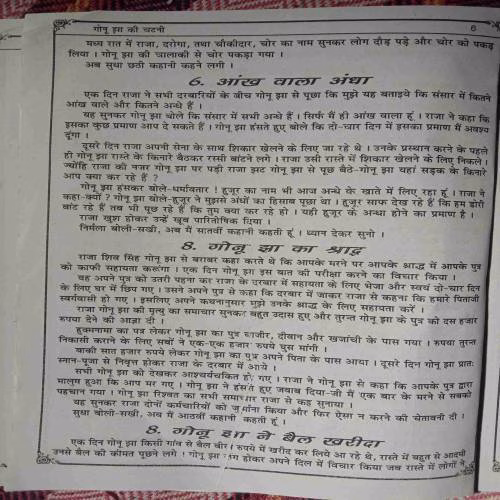 गोनू झा की चटनी
6
मध्य रात में राजा, दरोगा, तथा चौकीदार, चोर का नाम सुनकर लोग दौड़ पड़े और चोर को पकड़
लिया । गोनू झा की चालाकी से चोर पकड़ा गया ।
अब सुधा छठी कहानी कहने लगी ।
6. आंख वाला अंधा
एक दिन राजा ने सभी दरबारियों के बीच गोनू झा से पूछा कि मुझे यह बताइये कि संसार में कितने
आंख वाले और कितने अन्धे हैं ।
यह सुनकर गोनू झा बोले कि संसार में सभी अन्धे हैं । सिर्फ मैं ही आंख वाला हूं । राजा ने कहा कि
इसका कुछ प्रमाण आप दे सकते हैं । गोनू झा हंसते हुए बोले कि दो-चार दिन में इसका प्रमाण मैं अवश्य
दूंगा ।
दूसरे दिन राजा अपनी सेना के साथ शिकार खेलने के लिए जा रहे थे । उनके प्रस्थान करने के पहले
ही गोनू झा रास्ते के किनारे बैठकर रस्सी बांटने लगे । राजा उसी रास्ते में शिकार खेलने के लिए निकले ।
ज्योंहि राजा की नजर गोनू झा पर पड़ी राजा झट गोनू झा से पूछ बैठे-गोनू झा यहां सड़क के किनारे
आप क्या कर रहे हैं ?
गोनू झा हंसकर बोले-धर्मावतार ! हुजूर का नाम भी आज अन्धे के खाते में लिए रहा हूं । राजा ने
कहा-क्यों ? गोनू झा बोले-हुजूर ने मुझसे अंधों का हिसाब पूछा था । हुजूर साफ देख रहे हैं कि हम डोरी
बांट रहे हैं तब भी पूछ रहे हैं कि तुम क्या कर रहे हो । यही हुजूर के अन्धा होने का प्रमाण है ।
राजा खुश होकर उन्हें खूब पारितोषिक दिया ।
निर्मला बोली-सखी, अब मैं सातवीं कहानी कहती हूं । ध्यान देकर सुनो ।
8. गोनू झा का श्राद्ध
राजा शिव सिंह गोनू झा से बराबर कहा करते थे कि आपके मरने पर आपके श्राद्ध में आपके पुत्र
को काफी सहायता करूंगा । एक दिन गोनू झा इस बात की परीक्षा करने का विचार किया ।
वह अपने पुत्र को उतरी पहना कर राजा के दरबार में सहायता के लिए भेजा और स्वयं दो-चार दिन
के लिए घर में छिप गए । उसने अपने पुत्र से कहा कि दरबार में जाकर राजा से कहना कि हमारे पिताजी
स्वर्गवासी हो गए । इसलिए अपने कथनानुसार मुझे उनके श्राद्ध के लिए सहायता करें ।
राजा गोनू झा की मृत्यु का समाचार सुनकर बहुत उदास हुए और तुरन्त गोनू झा के पुत्र को दस हजार
रुपया देने की आज्ञा दी ।
हुक्मनामा का पत्र लेकर गोनू झा का पुत्र वजीर, दीवान और खजांची के पास गया । रुपया तुरन्त
निकासी कराने के लिए सबों ने एक-एक हजार रुपये घूस मांगी ।
बाकी सात हजार रुपये लेकर गोनू झा का पुत्र अपने पिता के पास आया । दूसरे दिन गोनू झा प्रातः
स्नान-पूजा से निवृत्त होकर राजा के दरबार में आये ।
सभी गोनू झा को देखकर आश्चर्यचकित हो गए । राजा ने गोनू झा से कहा कि आपके पुत्र द्वारा
मालूम हुआ कि आप मर गए । गोनू झा ने हंसते हुए जवाब दिया-जी मैं एक बार के मरने से सबको
पहचान गया । गोनू झा रिश्वत का सभी समाचार राजा से कह सुनाया ।
यह सुनकर राजा दोनों कर्मचारियों को जुर्माना किया और फिर ऐसा न करने की चेतावनी दी ।
सुधा बोली-सखी, अब मैं आठवीं कहानी कहती हूं ।
8. गोनू झा ने बैल खरीदा
एक दिन गोनू झा किसी गांव से बैल बीर रुपये में खरीद कर लिये आ रहे थे, रास्ते में बहुत से आदमी
उनसे बैल की कीमत पूछने लगे । गोनू झा होकर अपने दिल में विचार किया जब रास्ते में लोगों ने